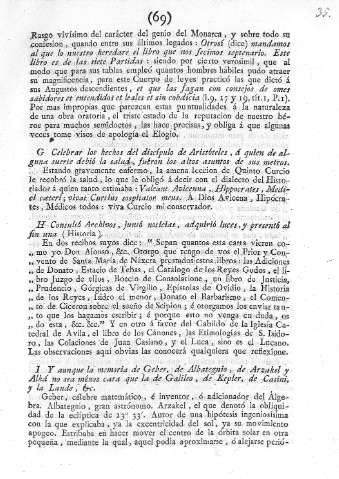 (69)
35.
Rasgo vivísimo del carácter del genio del Monarca, y sobre todo su
confesion, quando entre sus últimos legados: Otrosí (dice) mandamos
al que lo nuestro heredare el libro que nos fecimos septenario. Este
libro es de las siete Partidas: siendo por cierto verosimil, que al
modo que para sus tablas empleó quantos hombres hábiles pudo atraer
su magnificencia, para este Cuerpo de leyes practicó las que dictó á
sus Augustos descendientes, et que las fagan con consejo de omes
sabidores et entendidos et leales et sin cobdicia (l.9, 17 y 19, tit.1, P.1).
Por mas impropias que parezcan estas puntualidades á la naturaleza
de una obra oratoria, el triste estado de la reputacion de nuestro hé-
roe para muchos semidoctos, las hace precisas, y obliga á que algunas
veces tome visos de apología el Elogio.
G Celebrar los hechos del discípulo de Aristóteles, á quien de al-
guna suerte debió la salud, fueron los altos asuntos de sus metros.
Estando gravemente enfermo, la amena leccion de Quinto Curcio
le recobró la salud, lo que le obligó á decir con el dialecto del Histo-
riador á quien tanto estimaba: Valeant Avicenna, Hippocrates, Medi-
ci cæteri; vivat Curtius sospitator meus. A Dios Avicena, Hipócra-
tes, Médicos todos: viva Curcio mi conservador.
H Consultó Archivos, juntó noticias, adquirió luces, y presentó al
fin una (Historia).
En dos recibos suyos dice: "Sepan quantos esta carta vieren co-
„ mo yo Don Alfonso, &c. Otorgo que tengo de vos el Prior y Con-
„ vento de Santa María de Náxera prestados estos libros: las Adiciones
„ de Donato, Estacio de Tebas, el Catálogo de los Reyes Godos, el li-
„ bro Juzgo de ellos, Boecio de Consolacione, un libro de Justicia,
„ Prudencio, Geórgicas de Virgilio, Epístolas de Ovidio, la Historia
„ de los Reyes, Isidro el menor, Donato el Barbarismo, el Comen-
„ to de Ciceron sobre el sueño de Scipion; é otorgamos los enviar tan-
„ to que los hagamos escribir; é porque esto no venga en duda, os
„ do esta, &c. &c." Y en otro á favor del Cabildo de la Iglesia Ca-
tedral de Avila, el libro de los Cánones, las Etimologías de S. Isido-
ro, las Colaciones de Juan Casiano, y el Luca, sino es el Lucano.
Las observaciones aquí obvias las conocerá qualquiera que reflexîone.
I Y aunque la memoria de Geber, de Albategnio, de Arzakel y
Alhá no sea ménos cara que la de Galileo, de Kepler, de Casini,
y la Lande, &c.
Geber, célebre matemático, é inventor, ó adicionador del Alge-
bra. Albategnio, gran astrónomo. Arzakel, el que denotó la obliqui-
dad de la ecliptica de 23° 33'. Autor de una hipótesis ingeniosísima
con la que explicaba, ya la excentricidad del sol, ya su movimiento
apogeo. Estribaba en hacer mover el centro de la órbita solar en otra
pequeña, mediante la qual, aquel podia aproximarse, ó alejarse perió-